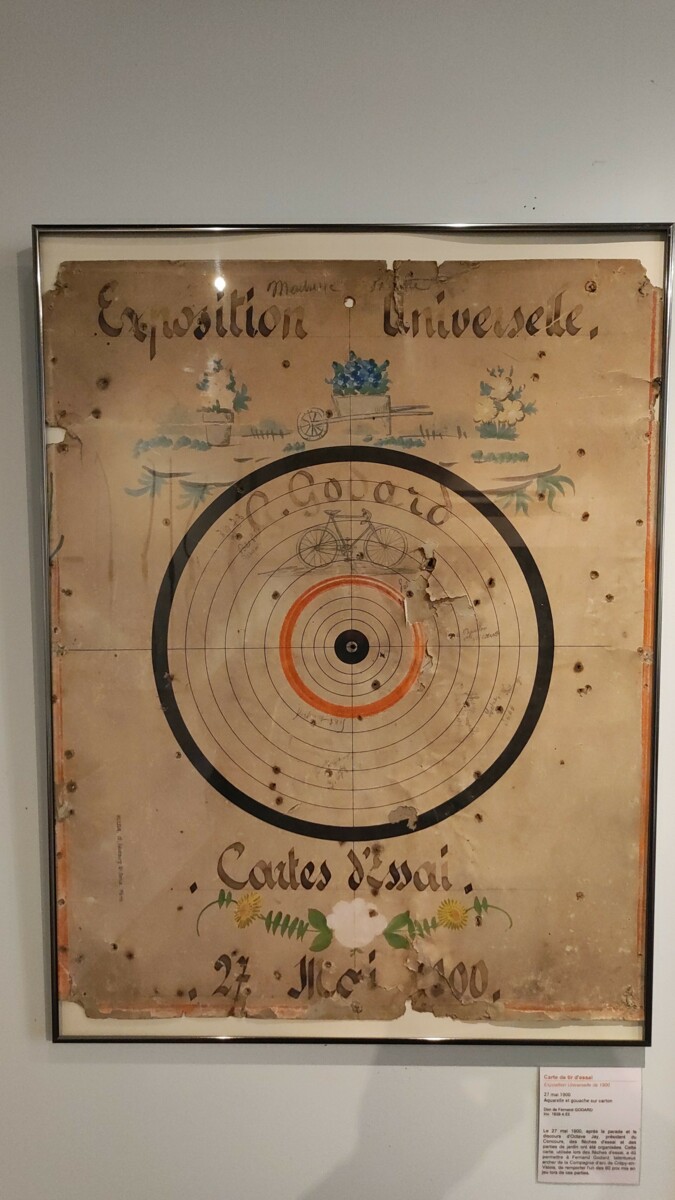 Exposition Universelle.
F. Godard
. Cartes d'Essai .
. 27 Mai 1900.
Carte de tir d'essai
Exposition Universelle de 1900
27 mai 1900
Aquarelle et gouache sur carton
Don de Fernand GODARD
Le 27 mai 1900, après la parade et le
discours d'Octave Jay, président du
Concours, des flèches d'essai et des
parties de jardin ont été organisées. Cette
carte, utilisée lors des flèches d'essai, a dû
permettre à Fernand Godard, talentueux
archer de la Compagnie d'arc de Crépy-en-
Valois, de remporter l'un des 60 prix mis en
jeu lors de ces parties.